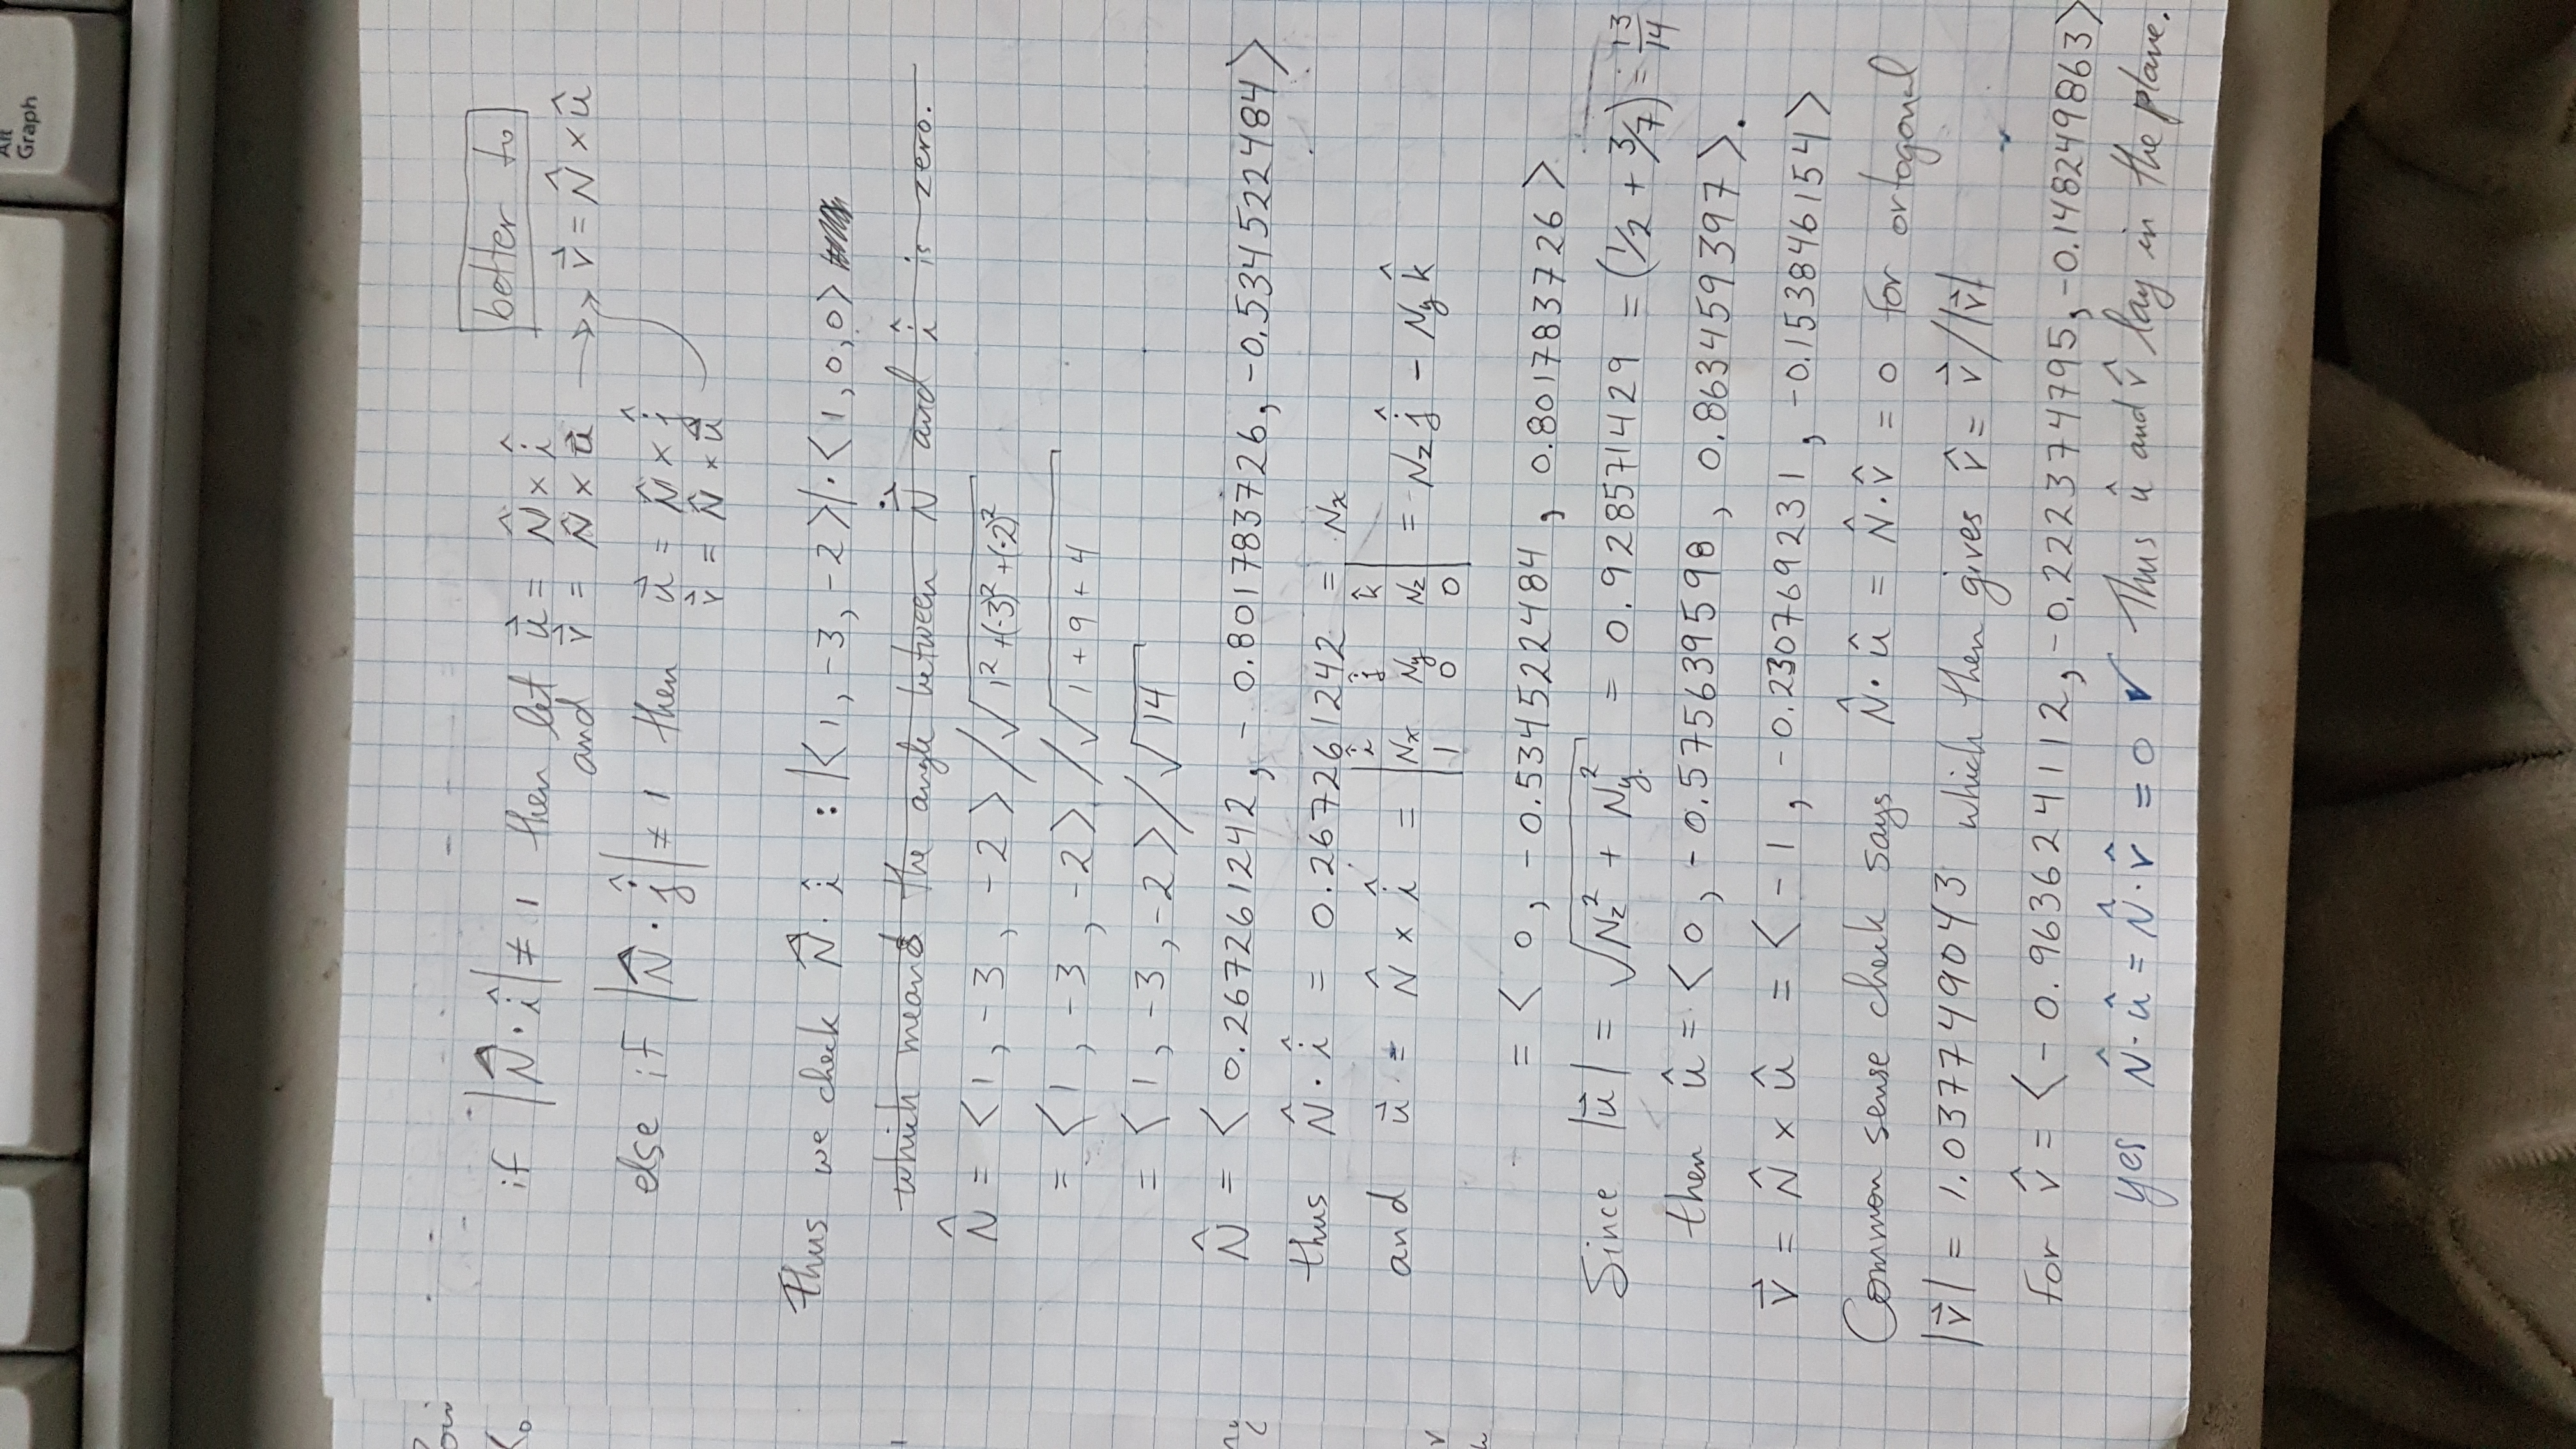 Alt
Graph
if |N̂ · î| ≠ 1 then let u⃗ = N̂ × î
better to
and v⃗ = N̂ × u⃗ →>> v⃗ = N̂ × û
else if |N̂ · ĵ| ≠ 1 then u⃗ = N̂ × ĵ
v⃗ = N̂ × u⃗
Thus we check N̂ · î : |<1, -3, -2>| · <1, 0, 0>
which means the angle between N⃗ and î is zero.
N̂ = <1, -3, -2> / √(1² + (-3)² + (-2)²)
= <1, -3, -2> / √(1 + 9 + 4)
= <1, -3, -2> / √14
N̂ = < 0.267261242, - 0.801783726, -0.534522484>
thus N̂ · î = 0.267261242 = Nx
and u⃗ = N̂ × î = | î ĵ k̂ | = Nz ĵ - Ny k̂
| Nx Ny Nz |
| 1 0 0 |
= < 0, -0.534522484, 0.801783726 >
Since |u⃗| = √(Nz² + Ny²) = 0.928571429 = (1/2 + 3/7) = 13/14
then û = < 0, -0.575639598, 0.863459397 >.
v⃗ = N̂ × û = < -1, -0.230769231, -0.153846154 >
Common sense check says N̂ · û = N̂ · v̂ = 0 for ortogonal
|v⃗| = 1.037749043 which then gives v̂ = v⃗/|v⃗|
for v̂ = <-0.963624112, -0.222374795, -0.148249863>
yes N̂ · û = N̂ · v̂ = 0 ✓ Thus û and v̂ lay in the plane.